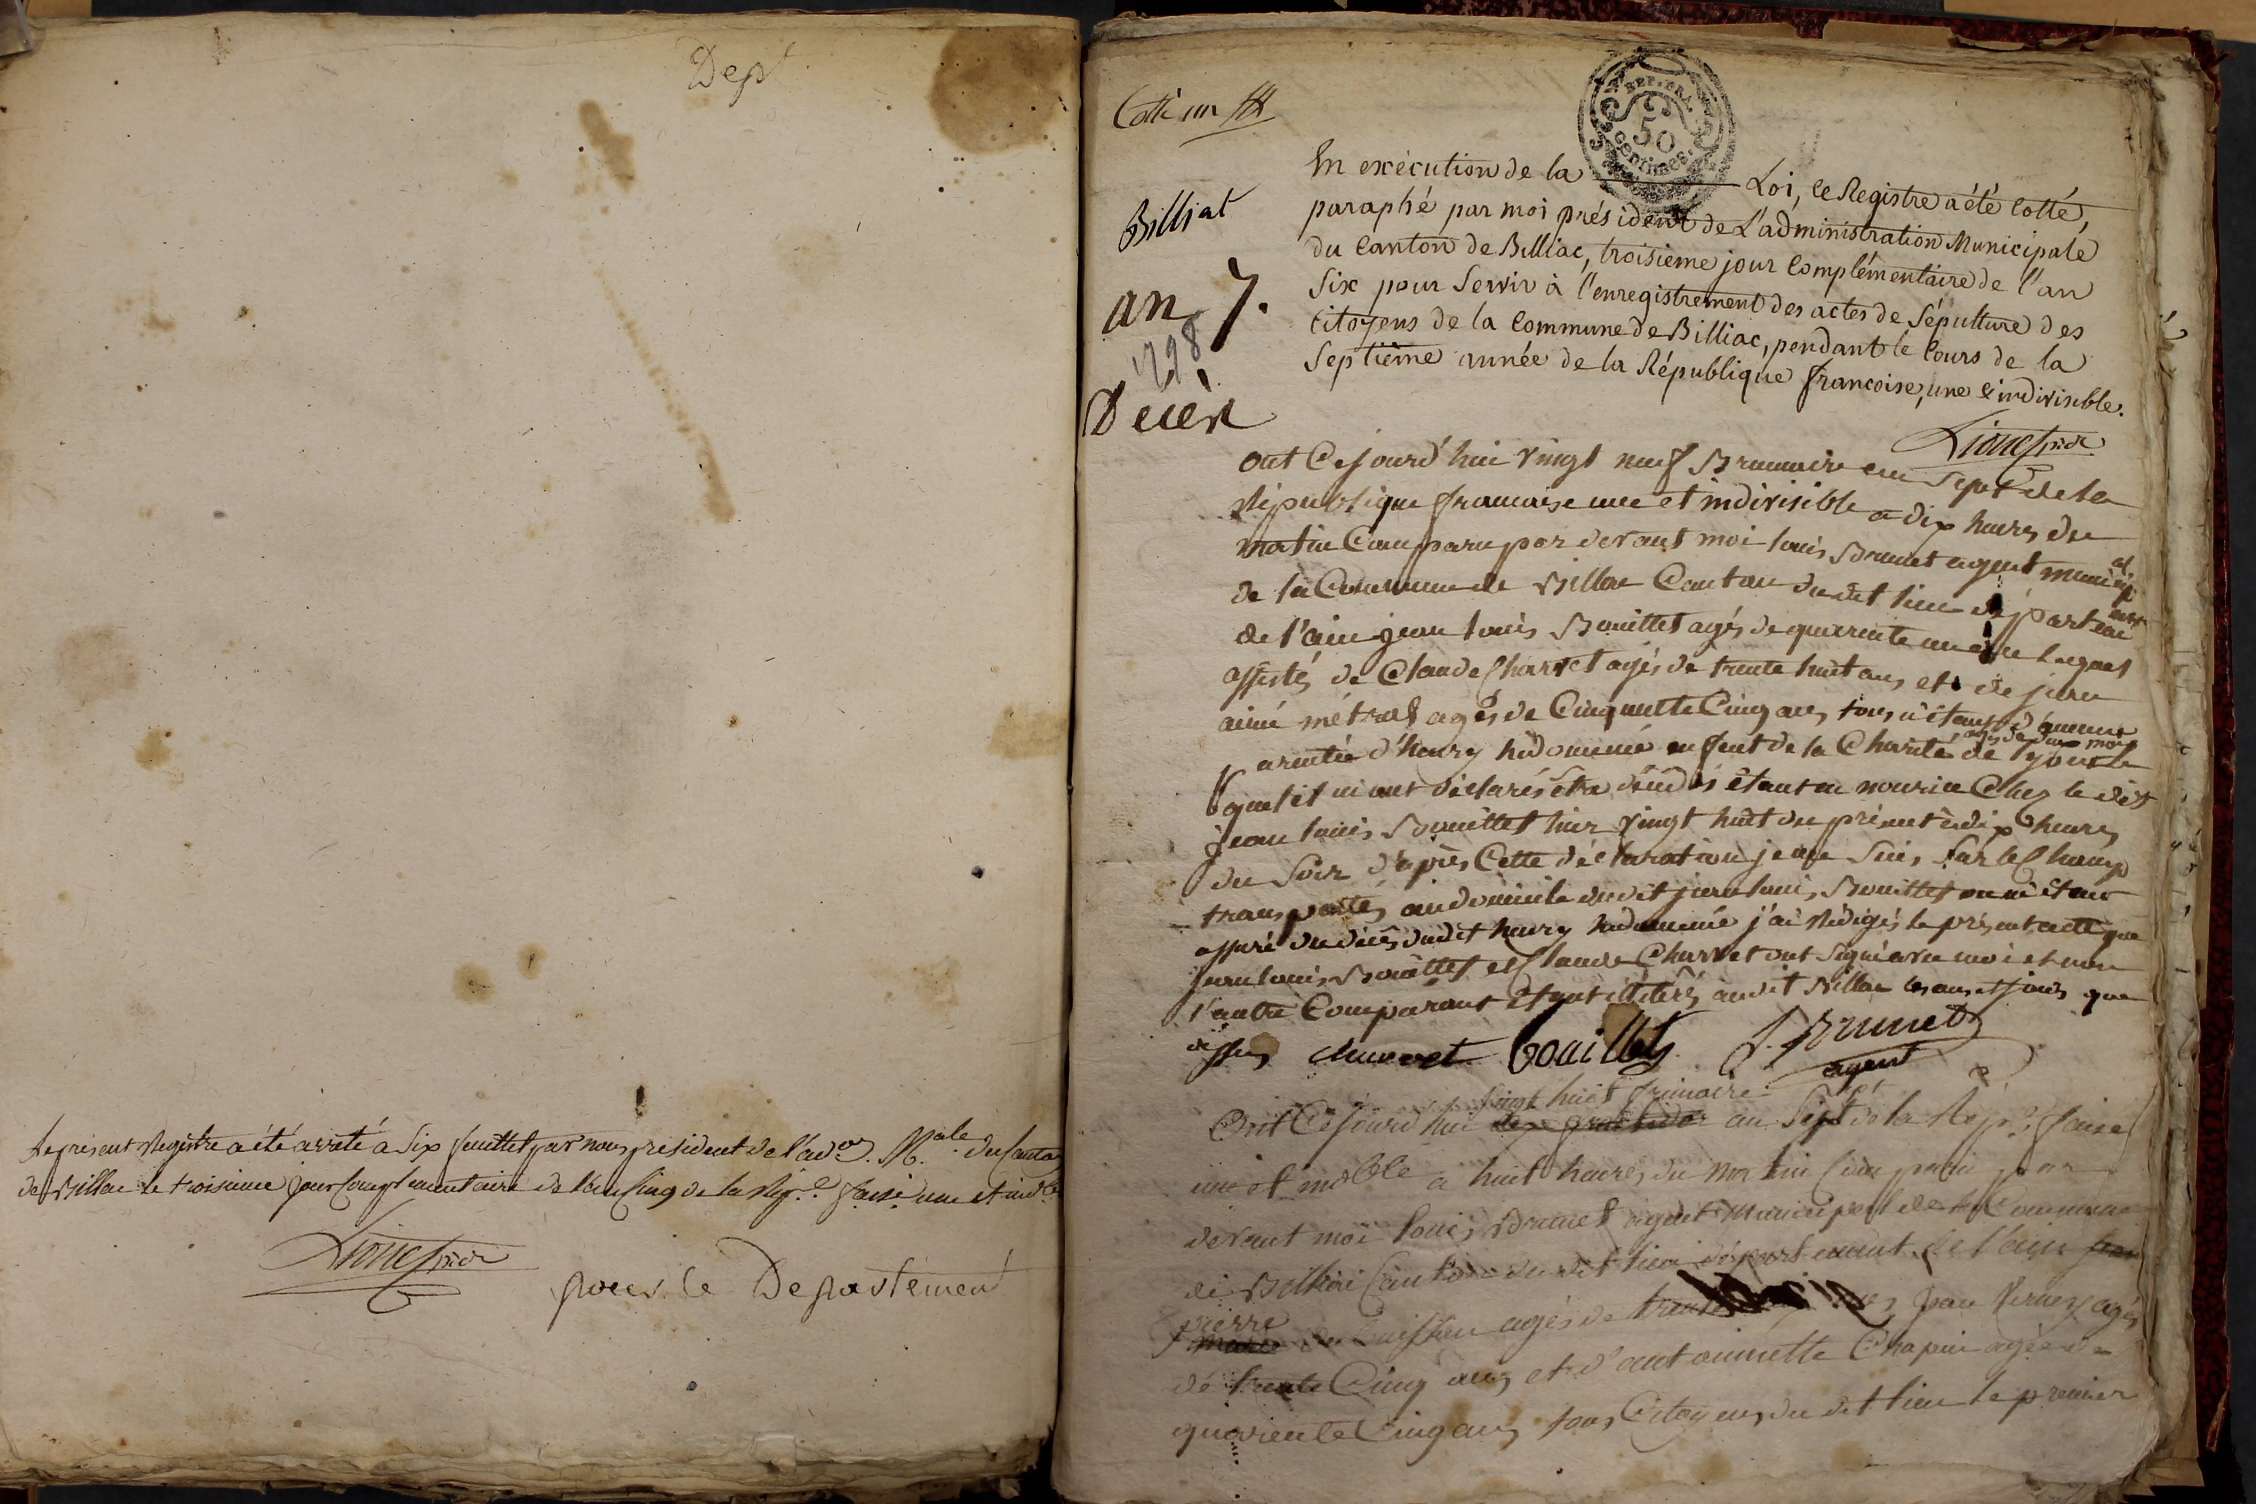 Dept
Le présent Registre a été arrêté a six feuillets par nous president de l'adon. Male. du Canton
de Billac le troisieme jour Complementaire de l'an Cinq de la Rep.e f.aise une et ind.ble
Lionet pide
pour le Departement
Cotté un
REP. FRA.
50
centimes.
Billiat
an 7.
1798
Décès
En exécution de la Loi, ce Registre a été Cotté,
paraphé par moi président de L'administration Municipale
du Canton de Billiac, troisieme jour Complémentaire de l'an
Six pour Servir à l'enregistrement des actes de Sépulture des
Citoyens de la Commune de Billiac, pendant le Cours de la
Septième année de la République francoise, une & indivisible.
Lionet pide
ont Cejourd'hui vingt neuf Brumaire an Sept de la
République francaise une et indivisible a dix heures du
matin Comparu par devant moi louis Brunet agent municipal
de la Commune de Billac Canton dudit lieu département
de l'ain jean louis Bouillet agés de quarente un an lequel
assistés de Claude Charvet agés de trente huit ans et de
aimé métral agés de Cinquante Cinq ans tous n'étant d'aucune
arentée d'henry nédommé enfent de la Charité de lyon
agés de deux mois
quel il m'ont déclarés être décédés étant en nourice Chez le dit
jean louis Bouillet hier vingt huit du présent à dix heures
du Soir d'après Cette déclaration je me Suis Sur le Champ
transportés au domicile dudit jean louis Bouillet ou m'étant
assuré du décès dudit henry nédommé j'ai Rédigés le présent acte que
jean louis Bouillet et Claude Charvet ont Signé avec moi et non
l'autre Comparant étant illiterés audit Billac les an et jours que
dessus charvet bouillet L. Brunet
agent
vingt huit frimaire
Ont Cejourd'hui an Sept de la Rep.e f.aise
une et indble a huit heures du matin Comparu par
devant moi louis Brunet agent Municipal de la Commune
de Billiac Canton du dit lieu département de l'ain
pierre agés de trente jean agés
de trente Cinq ans et d'antoinette Chapuis agée de
quarente Cinq ans tous Citoyens du dit lieu le premier